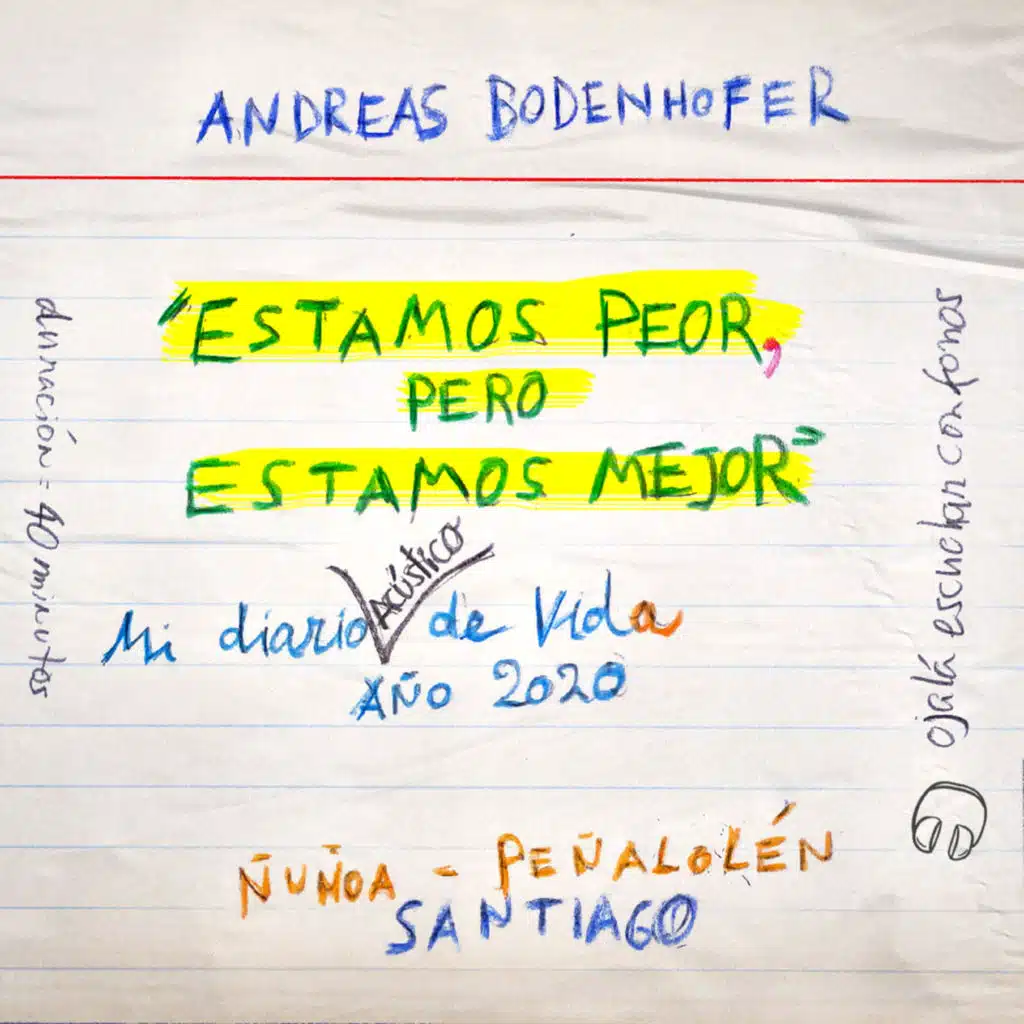 ANDREAS BODENHOFER
"ESTAMOS PEOR,
PERO
ESTAMOS MEJOR"
Mi diario Acústico de Vida
AÑO 2020
ÑUÑOA - PEÑALOLÉN
SANTIAGO
duración = 40 minutos
ojalá escuchar con fonos